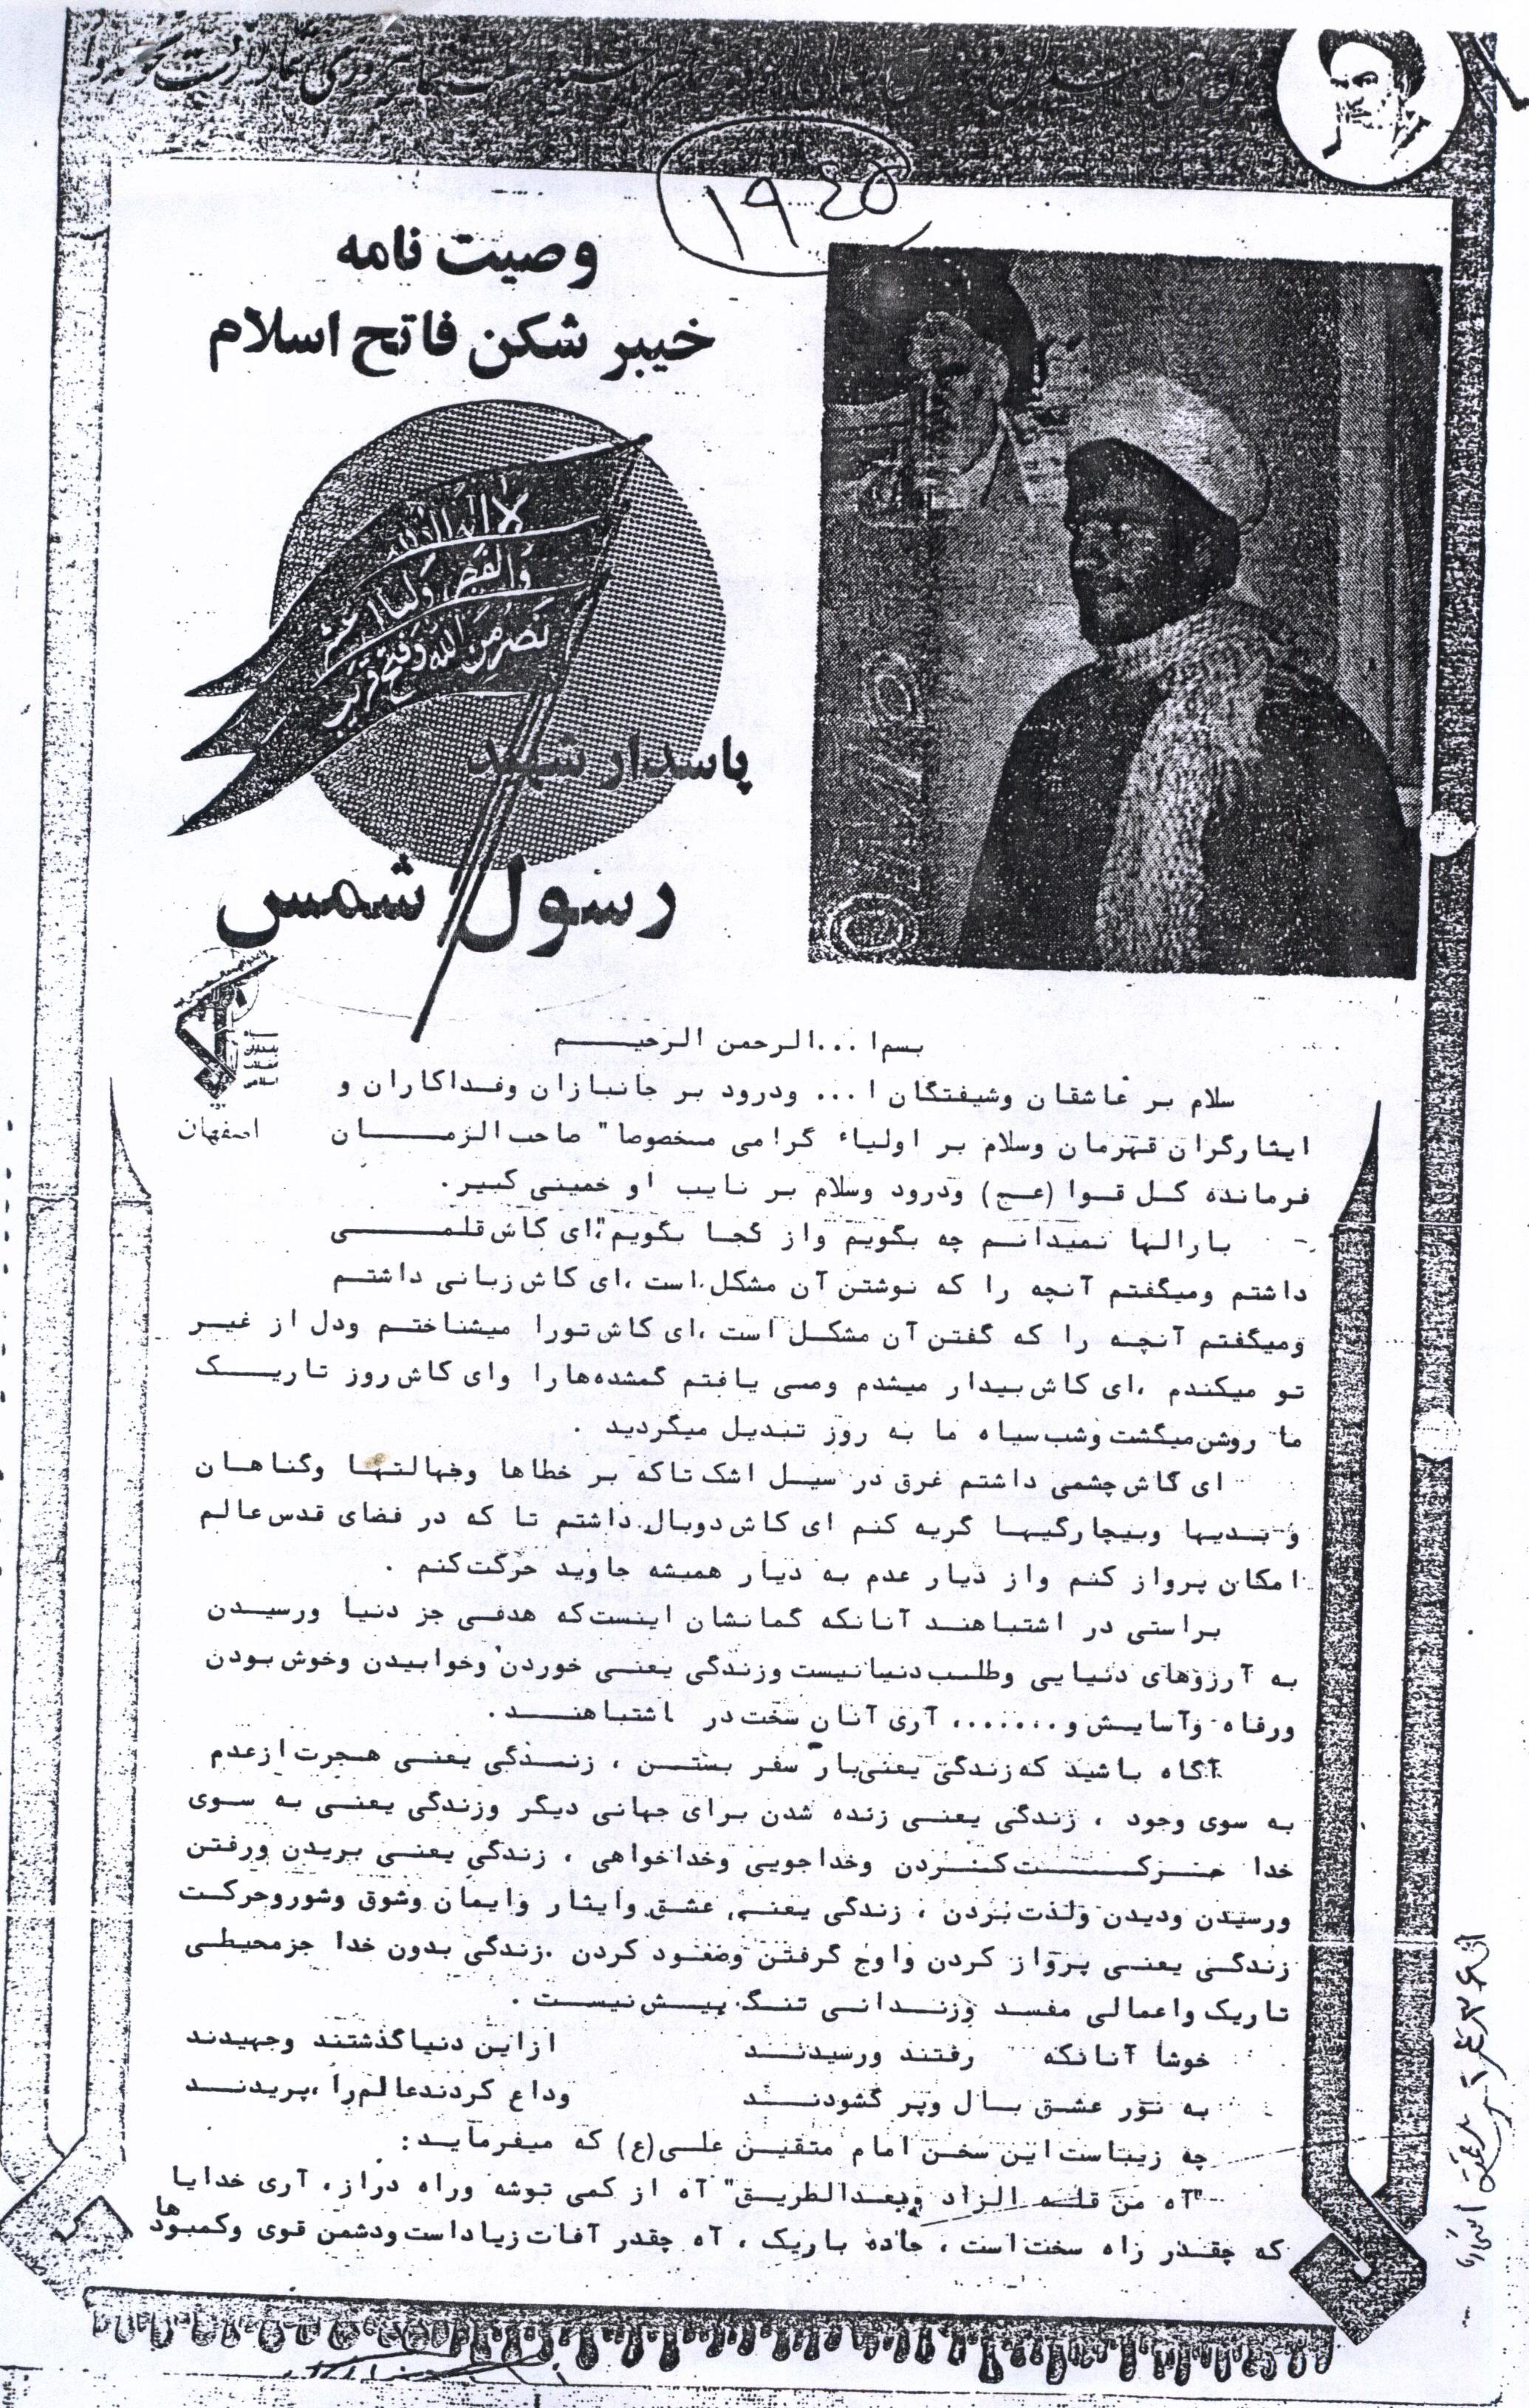 ۱۹۴۵
وصیت نامه
خیبر شکن فاتح اسلام
لا اله الا الله
والفجر ولیال عشر
نصر من الله وفتح قریب
پاسدار شهید
رسول شمس
سپاه
پاسداران
انقلاب
اسلامی
اصفهان
بسم ا...الرحمن الرحیم
سلام بر عاشقان وشیفتگان ا... ودرود بر جانبازان وفداکاران و
ایثارگران قهرمان وسلام بر اولیاء گرامی مخصوصا" صاحب الزمان
فرمانده کل قوا (عج) ودرود وسلام بر نایب او خمینی کبیر.
بارالها نمیدانم چه بگویم واز کجا بگویم"،ای کاش قلمی
داشتم ومیگفتم آنچه را که نوشتن آن مشکل است ،ای کاش زبانی داشتم
ومیگفتم آنچه را که گفتن آن مشکل است ،ای کاش تورا میشناختم ودل از غیر
تو میکندم ،ای کاش بیدار میشدم ومی یافتم گمشده‌هارا وای کاش روز تاریک
ما روشن میگشت وشب سیاه ما به روز تبدیل میگردید .
ای کاش چشمی داشتم غرق در سیل اشک تاکه بر خطاها وجهالتها وگناهان
و بدیها وبیچارگیها گریه کنم ای کاش دوبال داشتم تا که در فضای قدس عالم
امکان پرواز کنم واز دیار عدم به دیار همیشه جاوید حرکت کنم .
براستی در اشتباهند آنانکه گمانشان اینست که هدفی جز دنیا ورسیدن
به آرزوهای دنیایی وطلب دنیا نیست وزندگی یعنی خوردن وخوابیدن وخوش بودن
ورفاه وآسایش و.......، آری آنان سخت در اشتباهند .
آگاه باشید که زندگی یعنی بار سفر بستن ، زندگی یعنی هجرت ازعدم
به سوی وجود ، زندگی یعنی زنده شدن برای جهانی دیگر وزندگی یعنی به سوی
خدا حرکت کردن وخداجویی وخداخواهی ، زندگی یعنی بریدن ورفتن
ورسیدن ودیدن ولذت بردن ، زندگی یعنی عشق وایثار وایمان وشوق وشوروحرکت
زندگی یعنی پرواز کردن واوج گرفتن وصعود کردن .زندگی بدون خدا جزمحیطی
تاریک واعمالی مفسد وزندانی تنگ بیش نیست .
خوشا آنانکه رفتند ورسیدند ازاین دنیاگذشتند وجهیدند
به نور عشق بال وپر گشودند وداع کردندعالم را ،پریدند
چه زیباست این سخن امام متقین علی(ع) که میفرماید:
"آه من قله الزاد وبعدالطریق" آه از کمی توشه وراه دراز، آری خدایا
که چقدر راه سخت است ، جاده باریک ، آه چقدر آفات زیاداست ودشمن قوی وکمبودها